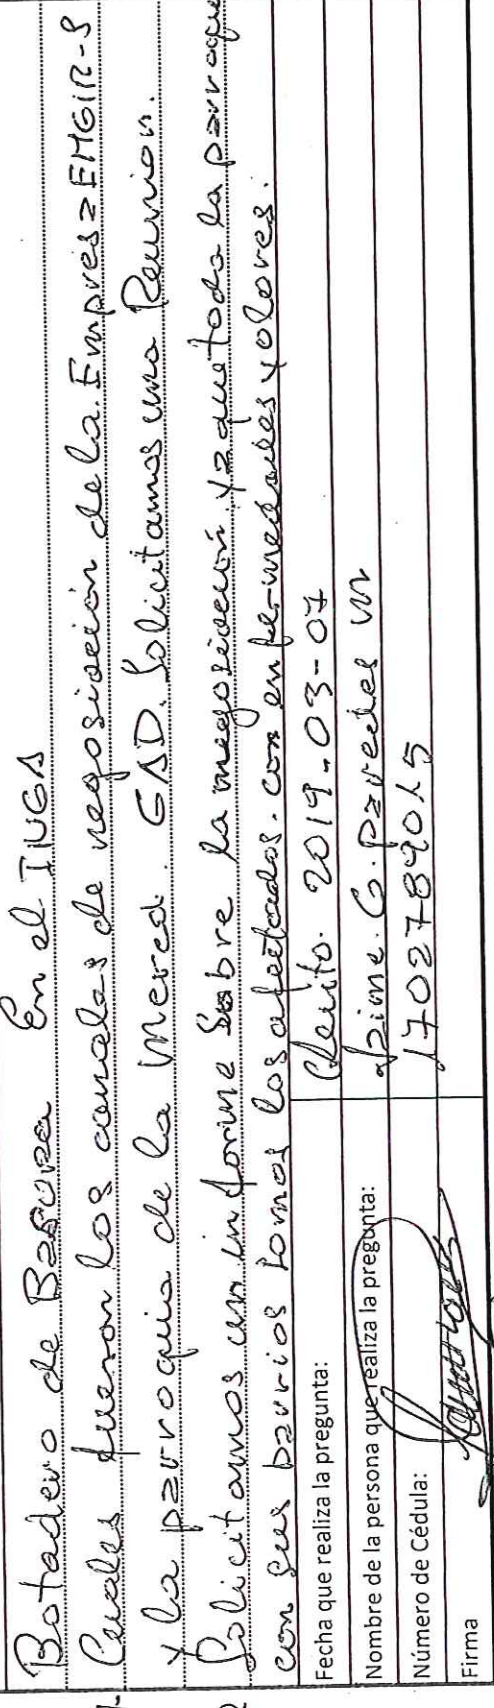 Botadero de Basura En el INGA
1. Cuales fueron los canales de negosiación de la. Empresa EMGIR-S
y la parroquia de la Merced. GAD. Solicitamos una Reunion.
2 Solicitamos un informe sobre la negosiación. ya que toda la parroque
con sus barrios somos los afectados. con enfermedades y olores.
Fecha que realiza la pregunta: Quito. 2019-03-07
Nombre de la persona que realiza la pregunta: Jaime. G. Paredes M
Número de Cédula: 1702789015
Firma